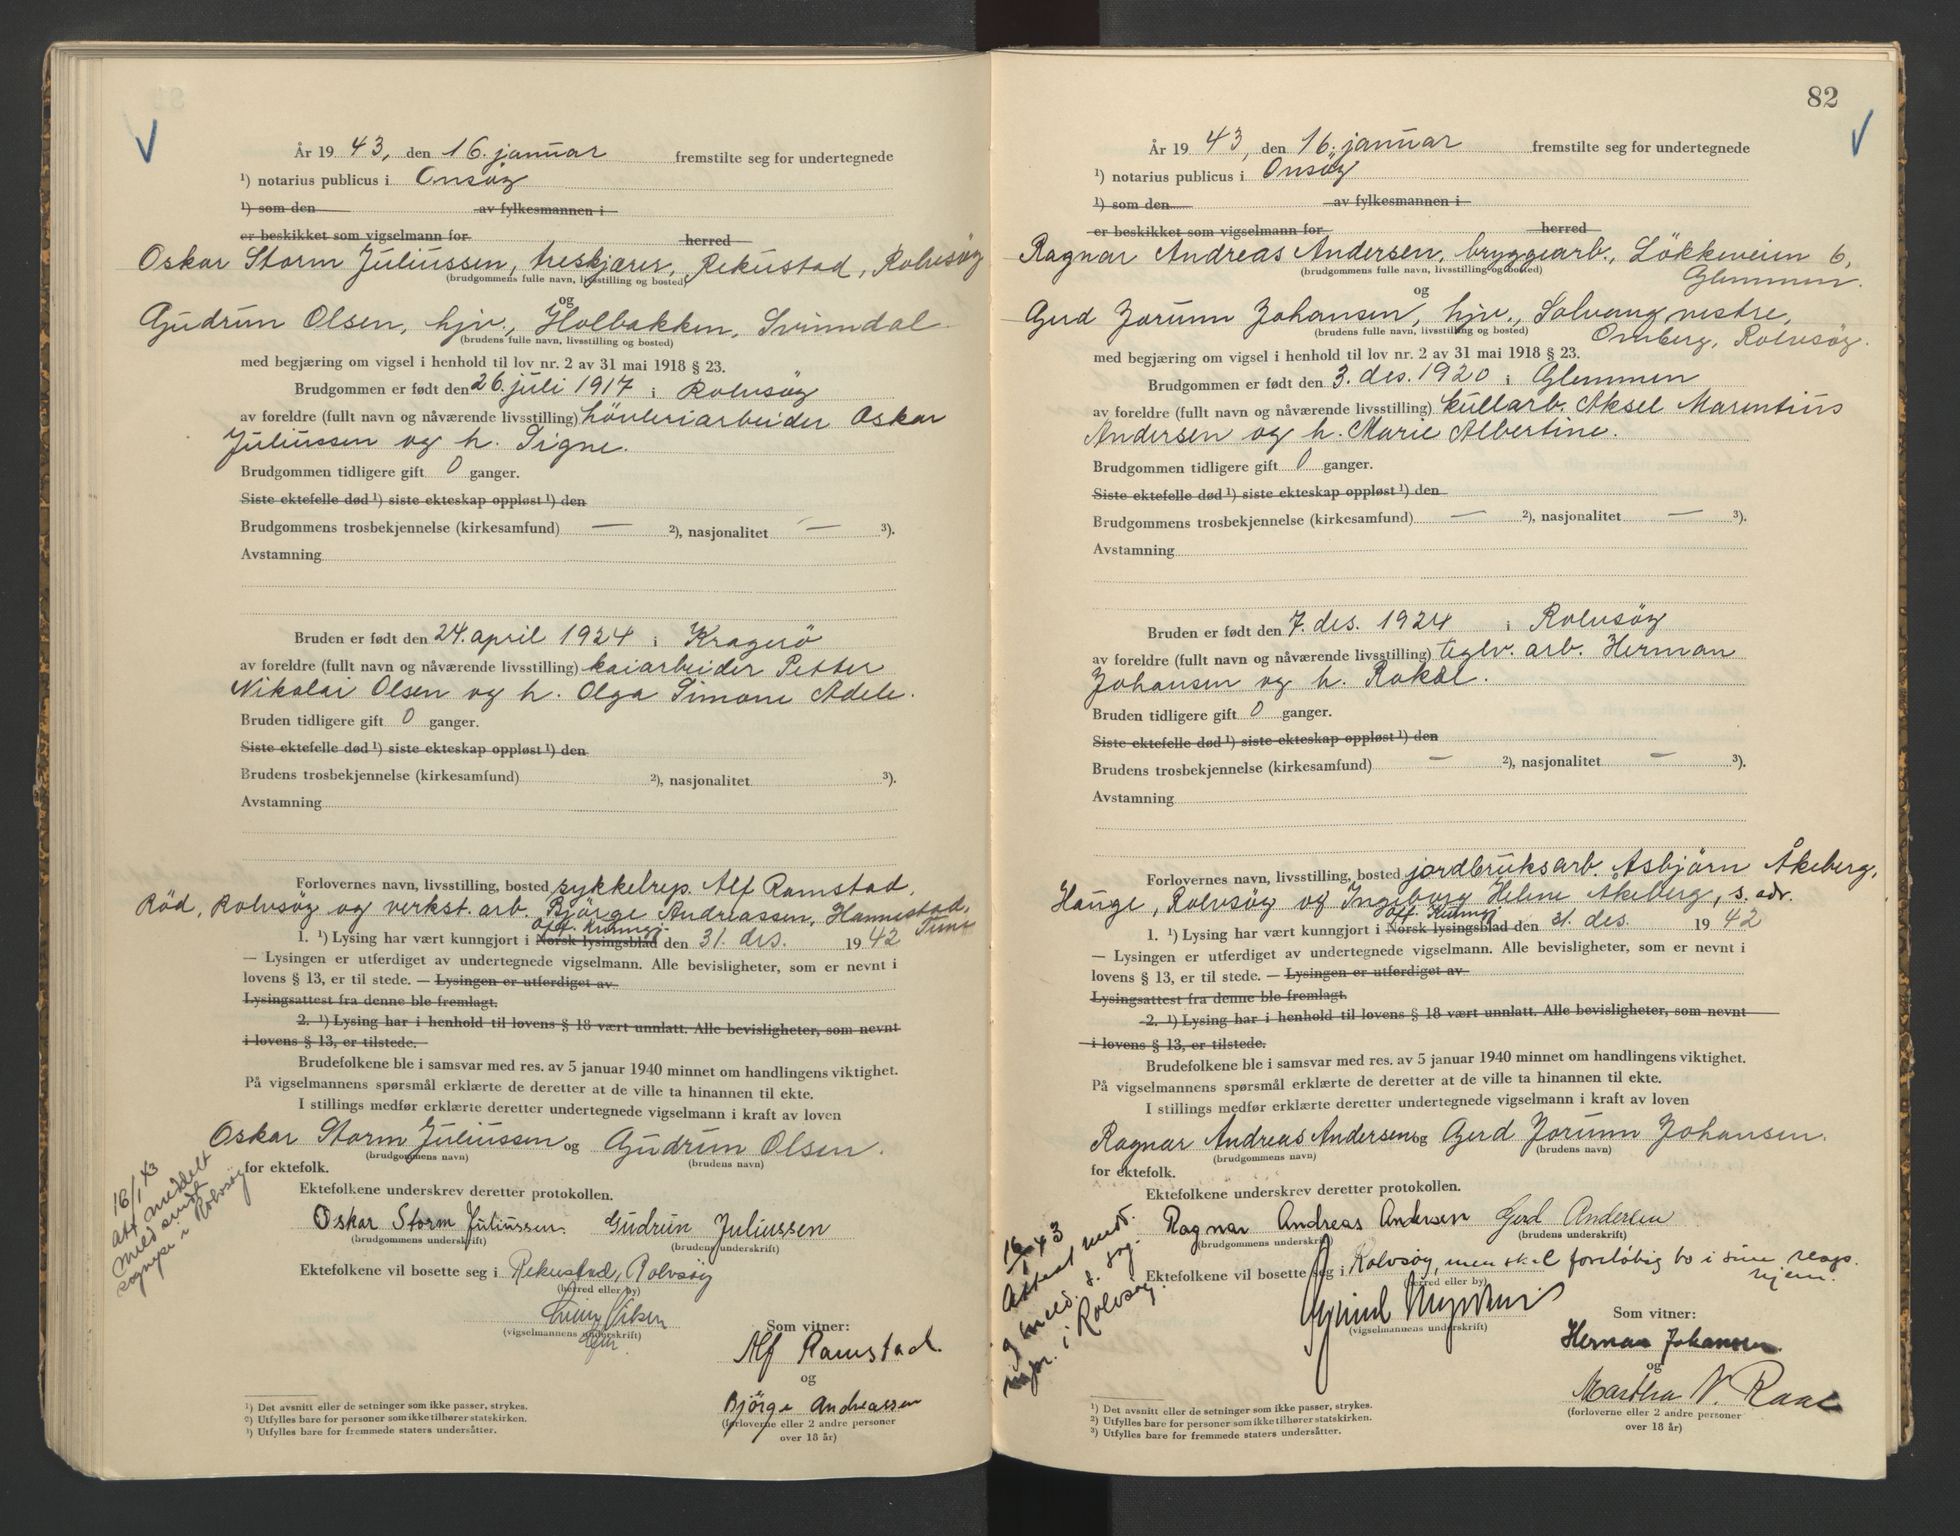 År 19 43, den 16. januar fremstilte seg for undertegnede
¹) notarius publicus i Onsöy
¹) som den av fylkesmannen i
er beskikket som vigselmann for herred
Oskar Storm Juliussen, treskjærer, Rekustad, Rolvsöy
(brudgommens fulle navn, livsstilling og bosted)
og
Gudrun Olsen, hjv., Holbakken, Svinndal
(brudens fulle navn, livsstilling og bosted)
med begjæring om vigsel i henhold til lov nr. 2 av 31 mai 1918 § 23.
Brudgommen er født den 26. juli 1917 i Rolvsöy
av foreldre (fullt navn og nåværende livsstilling) hövleriarbeider Oskar
Juliussen og h. Signe.
Brudgommen tidligere gift 0 ganger.
Siste ektefelle død ¹) siste ekteskap oppløst ¹) den
Brudgommens trosbekjennelse (kirkesamfund) — ²), nasjonalitet — ³).
Avstamning
Bruden er født den 24. april 1924 i Kragerö
av foreldre (fullt navn og nåværende livsstilling) kaiarbeider Petter
Nikolai Olsen og h. Olga Simone Adele.
Bruden tidligere gift 0 ganger.
Siste ektefelle død ¹) siste ekteskap oppløst ¹) den
Brudens trosbekjennelse (kirkesamfund) ²), nasjonalitet ³).
Avstamning
Forlovernes navn, livsstilling, bosted sykkelrep. Alf Ramstad,
Röd, Rolvsöy og verkst. arb. Björge Andreassen, Hannestad,
Tune
off. kunng.
1. ¹) Lysing har vært kunngjort i Norsk lysingsblad den 31. des. 19 42
— Lysingen er utferdiget av undertegnede vigselmann. Alle bevisligheter, som er nevnt i
lovens § 13, er til stede. — Lysingen er utferdiget av
Lysingsattest fra denne ble fremlagt.
2. ¹) Lysing har i henhold til lovens § 18 vært unnlatt. Alle bevisligheter, som nevnt
i lovens § 13, er tilstede.
Brudefolkene ble i samsvar med res. av 5 januar 1940 minnet om handlingens viktighet.
På vigselmannens spørsmål erklærte de deretter at de ville ta hinannen til ekte.
I stillings medfør erklærte deretter undertegnede vigselmann i kraft av loven
Oskar Storm Juliussen og Gudrun Olsen.
(brudgommens navn) (brudens navn)
for ektefolk.
16/1 43
att. meddelt
Ektefolkene underskrev deretter protokollen.
Oskar Storm Juliussen. Gudrun Juliussen
(brudgommens underskrift) (brudens underskrift)
Ektefolkene vil bosette seg i Rekustad, Rolvsöy
(herred eller by)
(vigselmannens underskrift)
Som vitner:
Alf Ramstad
og
Björge Andreassen
(forloverne eller 2 andre personer
over 18 år)
¹) Det avsnitt eller de setninger som ikke passer, strykes.
²) Utfylles bare for personer som ikke tilhører statskirken.
³) Utfylles bare for fremmede staters undersåtter.
82
År 19 43, den 16. januar fremstilte seg for undertegnede
¹) notarius publicus i Onsöy
¹) som den av fylkesmannen i
er beskikket som vigselmann for herred
Ragnar Andreas Andersen, bryggearb., Lökkeveien 6,
Glemmen.
(brudgommens fulle navn, livsstilling og bosted)
og
Gerd Jorunn Johansen, hjv., Solvang nestre,
(brudens fulle navn, livsstilling og bosted)
Omberg, Rolvsöy.
med begjæring om vigsel i henhold til lov nr. 2 av 31 mai 1918 § 23.
Brudgommen er født den 3. des. 1920 i Glemmen
av foreldre (fullt navn og nåværende livsstilling) kullarb. Aksel Marentius
Andersen og h. Marie Albertine.
Brudgommen tidligere gift 0 ganger.
Siste ektefelle død ¹) siste ekteskap oppløst ¹) den
Brudgommens trosbekjennelse (kirkesamfund) — ²), nasjonalitet — ³).
Avstamning
Bruden er født den 7. des. 1924 i Rolvsöy
av foreldre (fullt navn og nåværende livsstilling) teglv. arb. Herman
Johansen og h. Rakel.
Bruden tidligere gift 0 ganger.
Siste ektefelle død ¹) siste ekteskap oppløst ¹) den
Brudens trosbekjennelse (kirkesamfund) — ²), nasjonalitet — ³).
Avstamning
Forlovernes navn, livsstilling, bosted jordbruksarb. Asbjörn Åkeberg,
Hauge, Rolvsöy og Ingeborg Helene Åkeberg, s. adr.
off. kunng.
1. ¹) Lysing har vært kunngjort i Norsk lysingsblad den 31. des. 19 42
— Lysingen er utferdiget av undertegnede vigselmann. Alle bevisligheter, som er nevnt i
lovens § 13, er til stede. — Lysingen er utferdiget av
Lysingsattest fra denne ble fremlagt.
2. ¹) Lysing har i henhold til lovens § 18 vært unnlatt. Alle bevisligheter, som nevnt
i lovens § 13, er tilstede.
Brudefolkene ble i samsvar med res. av 5 januar 1940 minnet om handlingens viktighet.
På vigselmannens spørsmål erklærte de deretter at de ville ta hinannen til ekte.
I stillings medfør erklærte deretter undertegnede vigselmann i kraft av loven
Ragnar Andreas Andersen og Gerd Jorunn Johansen.
(brudgommens navn) (brudens navn)
for ektefolk.
Ektefolkene underskrev deretter protokollen.
16/1 43
Ragnar Andreas Andersen Gerd Andersen
(brudgommens underskrift) (brudens underskrift)
Ektefolkene vil bosette seg i Rolvsöy, men skal foreløbig bo i sine resp.
hjem.
(herred eller by)
i Rolvsöy.
(vigselmannens underskrift)
Som vitner:
Herman Johansen
og
Martha N. Raae
(forloverne eller 2 andre personer
over 18 år)
¹) Det avsnitt eller de setninger som ikke passer, strykes.
²) Utfylles bare for personer som ikke tilhører statskirken.
³) Utfylles bare for fremmede staters undersåtter.